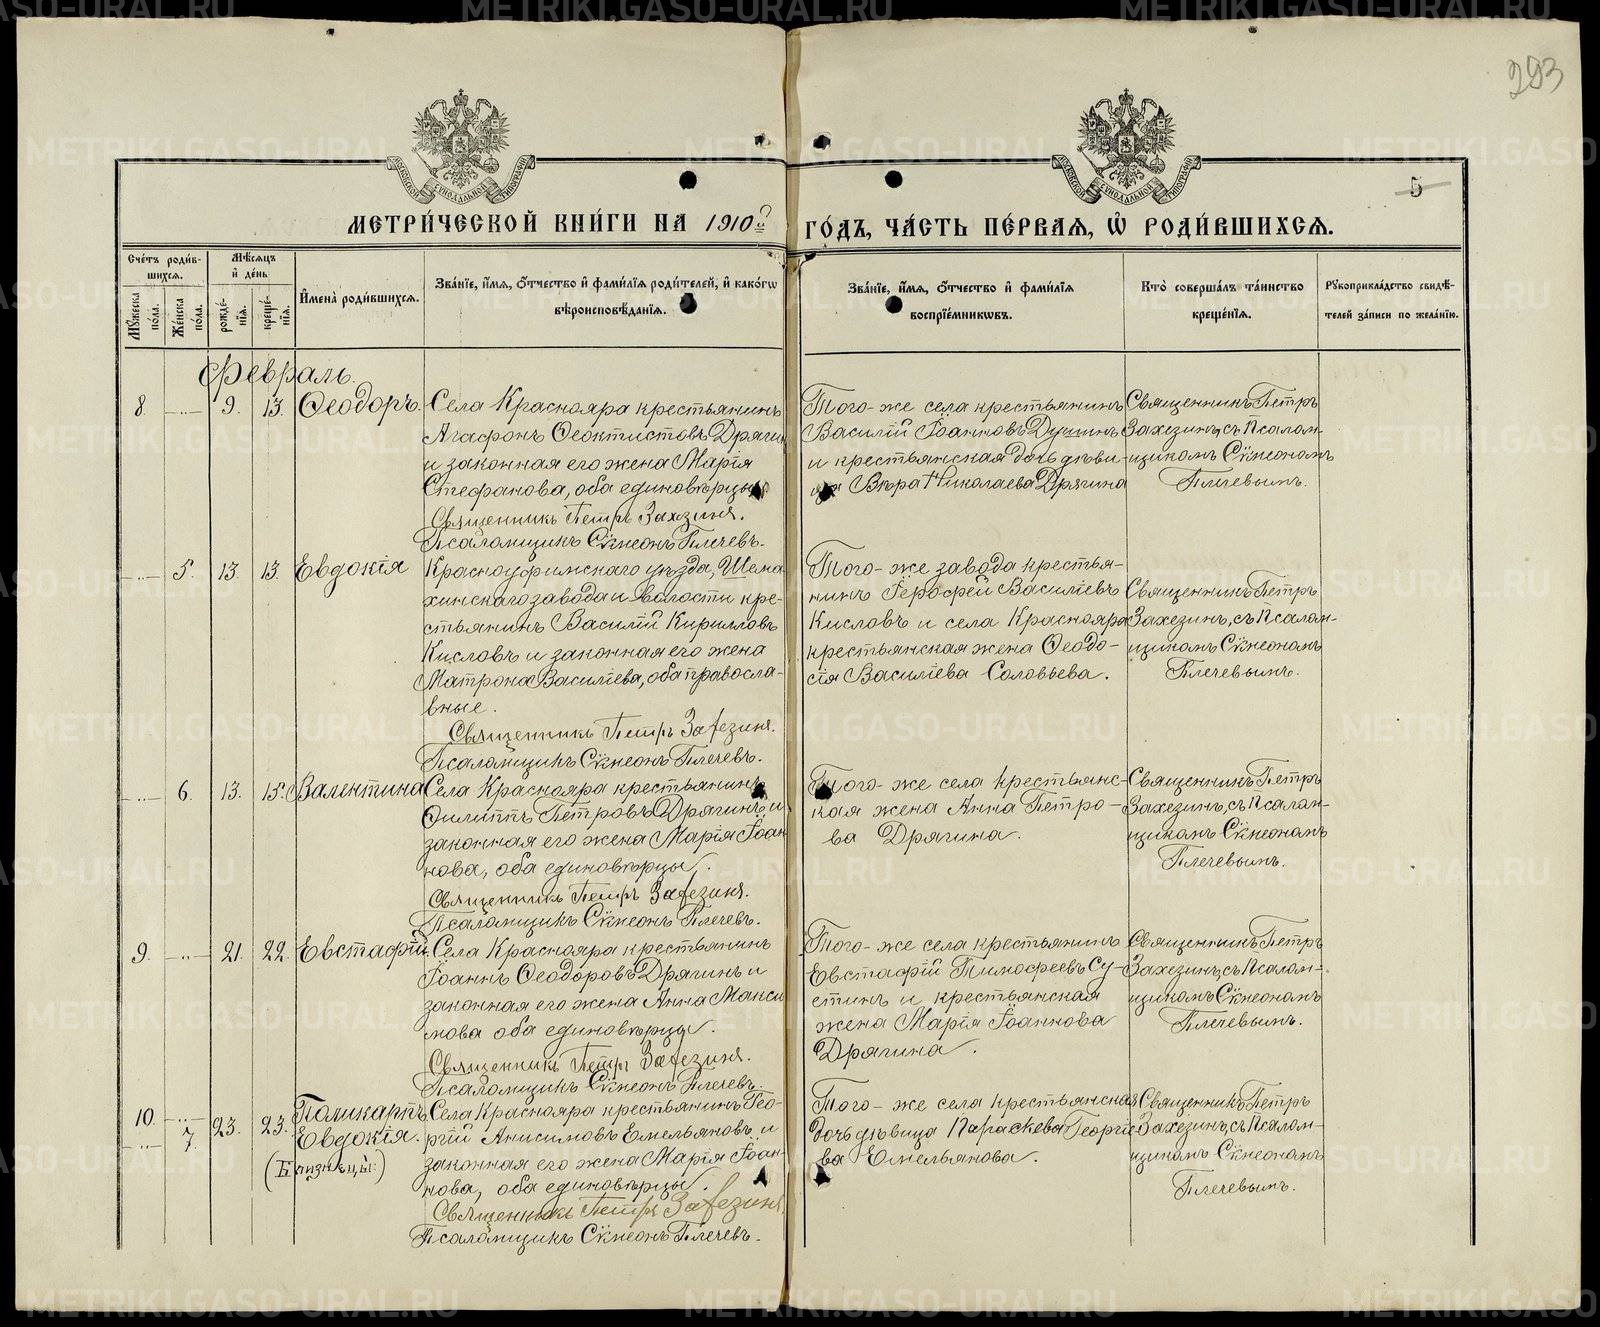 293
5
МОСКОВСКОЙ СѴНОДАЛЬНОЙ ТИПОГРАФІИ
МОСКОВСКОЙ СѴНОДАЛЬНОЙ ТИПОГРАФІИ
МЕТРИ́ЧЕСКОЙ КНИ́ГИ НА 1910 ГО́ДЪ, ЧА́СТЬ ПЕ́РВАѦ, Ѡ҆ РОДИ́ВШИХСѦ.
Сче́тъ роди́в-
шихсѧ.
Мѣ́сѧцъ
и҆ де́нь
Мꙋ́жеска по́ла.
Же́нска по́ла.
рожде́-
нїѧ.
креще́-
нїѧ.
И҆мена̀ роди́вшихсѧ.
Зва́нїе, и҆́мѧ, ѻ҆́тчество и҆ фами́лїѧ роди́телей, и҆ како́гѡ
вѣроисповѣ́данїѧ.
Зва́нїе, и҆́мѧ, ѻ҆́тчество и҆ фами́лїѧ
воспрїе́мникѡвъ.
Кто̀ соверша́лъ та́инство
креще́нїѧ.
Рꙋкоприкла́дство свидѣ́-
телей за́писи по жела́нїю.
Февраль.
8. 9. 13. Ѳеодоръ.
Села Краснояра крестьянинъ
Агафонъ Ѳеоктистовъ Дрягин
и законная его жена Марія
Стефанова, оба единовѣрцы
Священникъ Петръ Захезинъ.
Псаломщикъ Сѵмеонъ Плечевъ.
Того-же села крестьянинъ
Василій Іоанновъ Душинъ
и крестьянская дочь дѣви-
ца Вѣра Николаева Дрягина
Священникъ Петръ
Захезинъ, съ Псалом-
щикомъ Сѵмеономъ
Плечевымъ.
5. 13. 13. Евдокія
Красноуфимскаго уѣзда, Шема-
хинскаго завода и волости кре-
стьянинъ Василій Кирилловъ
Кисловъ и законная его жена
Матрона Василіева, оба правосла-
вные.
Священникъ Петръ Захезинъ.
Псаломщикъ Сѵмеонъ Плечевъ.
Того-же завода крестья-
нинъ Іероѳей Василіевъ
Кисловъ и села Краснояра
крестьянская жена Ѳеодо-
сія Василіева Соловьева.
Священникъ Петръ
Захезинъ, съ Псалом-
щикомъ Сѵмеономъ
Плечевымъ.
6. 13. 15. Валентина
Села Краснояра крестьянинъ
Филиппъ Петровъ Дрягинъ и
законная его жена Марія Іоан
нова, оба единовѣрцы.
Священникъ Петръ Захезинъ.
Псаломщикъ Сѵмеонъ Плечевъ.
Того-же села крестьянс-
кая жена Анна Петро-
ва Дрягина.
Священникъ Петръ
Захезинъ, съ Псалом-
щикомъ Сѵмеономъ
Плечевымъ.
9. 21. 22. Евстафій.
Села Краснояра крестьянинъ
Іоаннъ Ѳеодоровъ Дрягинъ и
законная его жена Анна Макси
мова оба единовѣрцы.
Священникъ Петръ Захезинъ.
Псаломщикъ Сѵмеонъ Плечевъ.
Того-же села крестьянинъ
Евстафій Тимоѳеевъ Су-
стинъ и крестьянская
жена Марія Іоаннова
Дрягина.
Священникъ Петръ
Захезинъ, съ Псалом-
щикомъ Сѵмеономъ
Плечевымъ.
10. 7. 23. 23. Поликарпъ
Евдокія.
(Близнецы:)
Села Краснояра крестьянинъ Гео-
ргій Анисимовъ Емельяновъ и
законная его жена Марія Іоан-
нова, оба единовѣрцы.
Священникъ Петръ Захезинъ
Псаломщикъ Сѵмеонъ Плечевъ.
Того-же села крестьянская
дочь дѣвица Параскева Георгіе-
ва Емельянова.
Священникъ Петръ
Захезинъ, съ Псалом-
щикомъ Сѵмеономъ
Плечевымъ.
METRIKI.GASO-URAL.RU